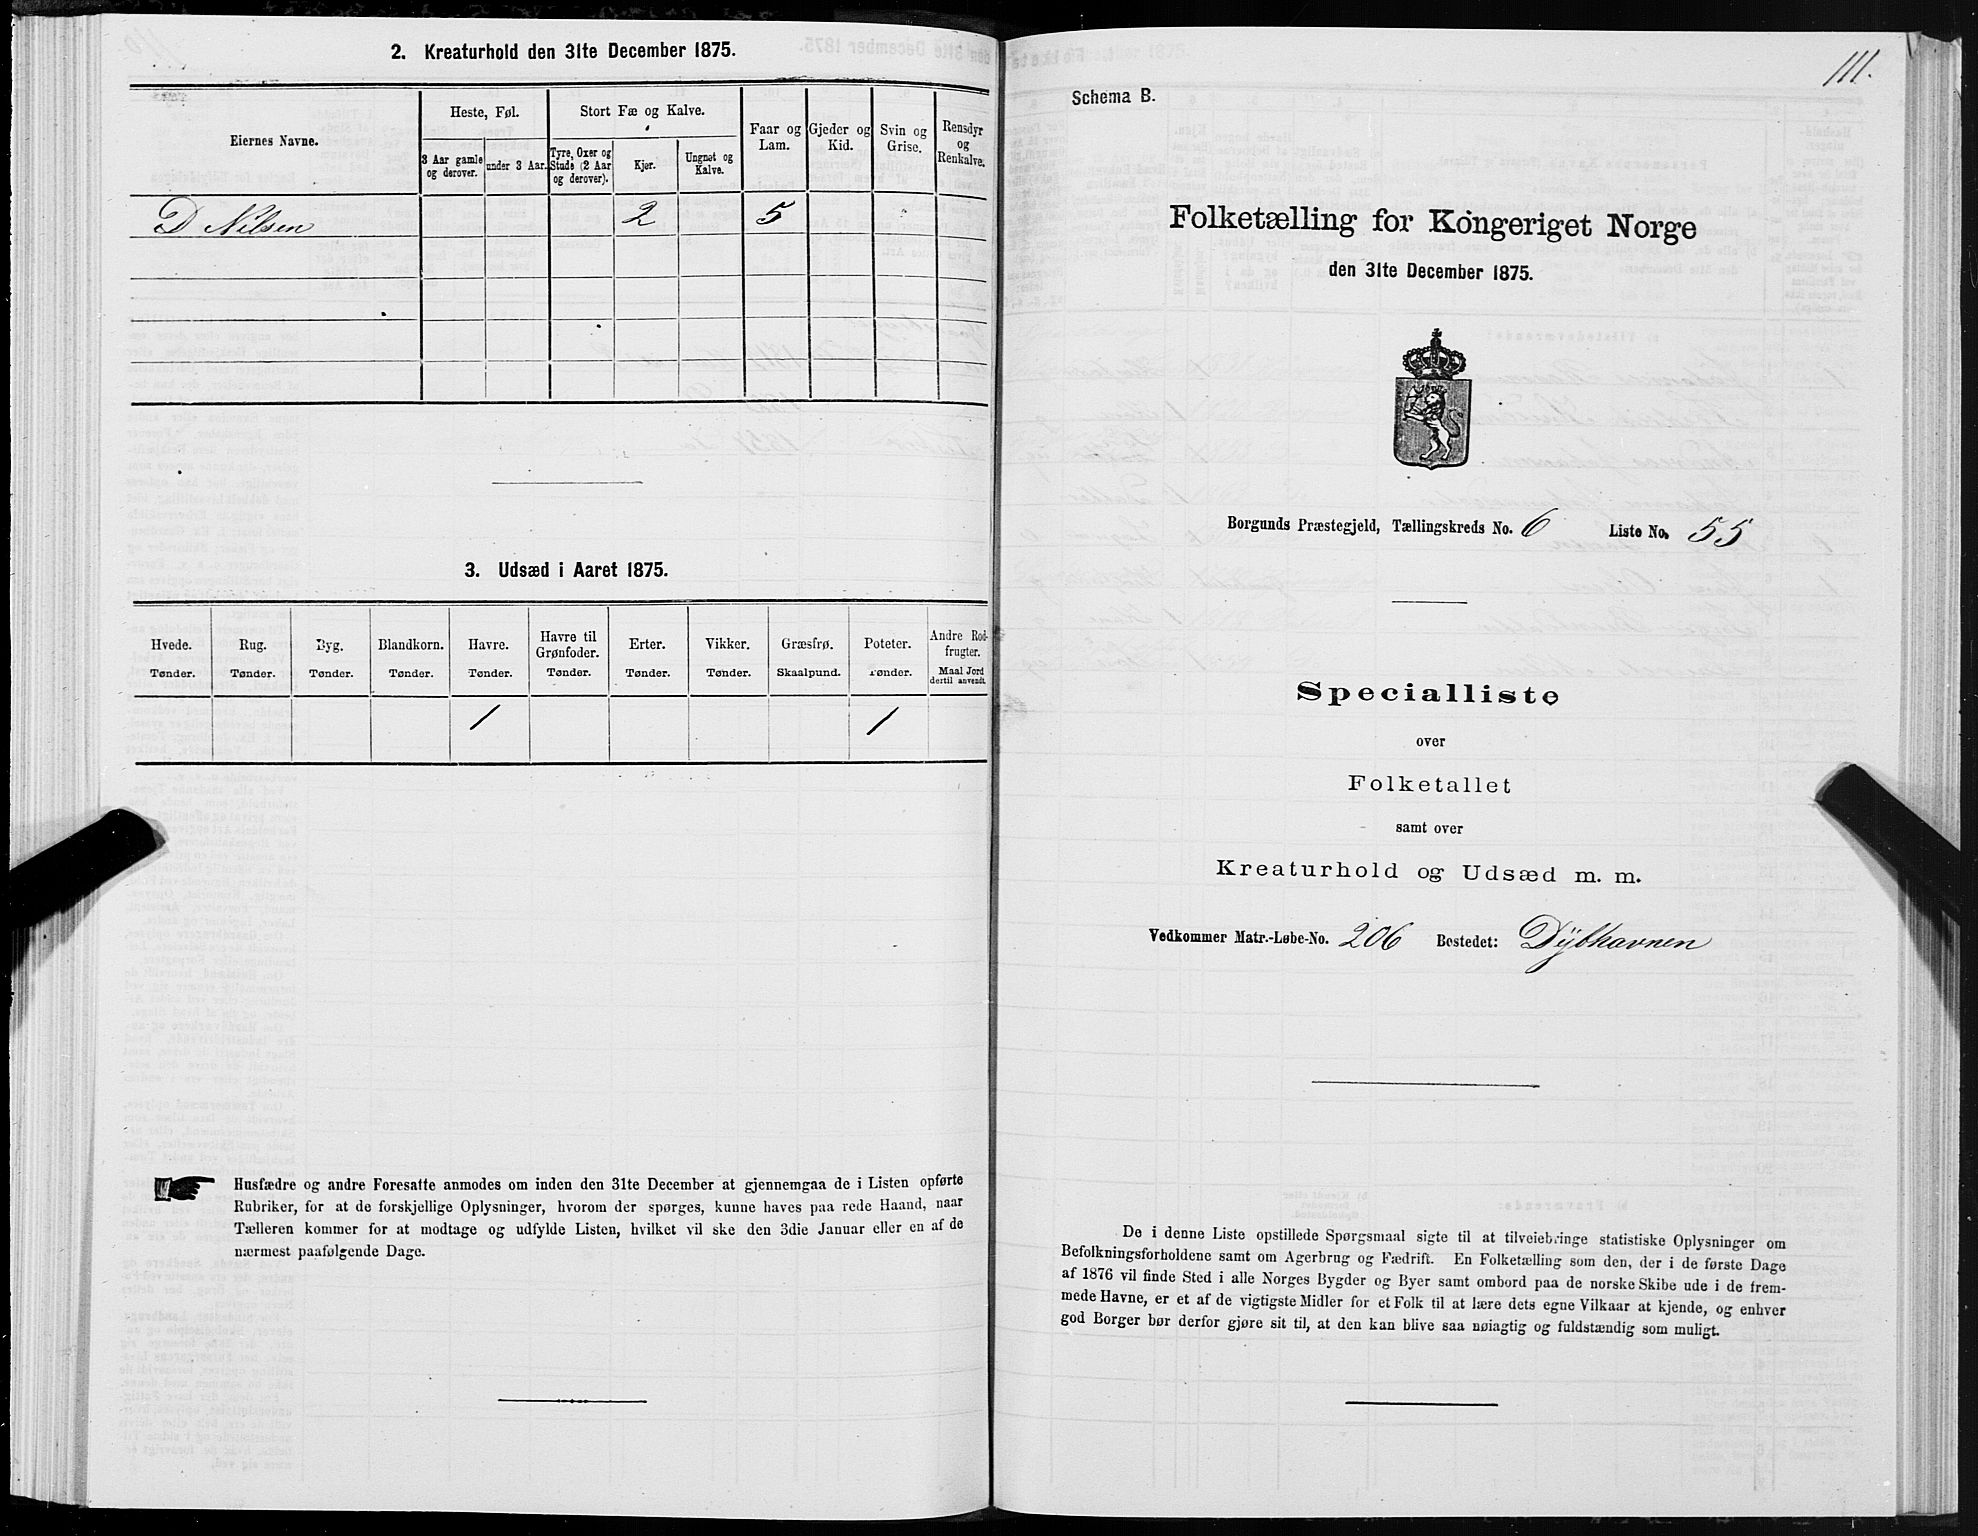 2. Kreaturhold den 31te December 1875.
Eiernes Navne.
Heste, Føl.
Stort Fæ og Kalve.
Faar og Lam.
Gjeder og Kid.
Svin og Grise.
Rensdyr og Renkalve.
3 Aar gamle og derover.
under 3 Aar.
Tyre, Oxer og Stude (2 Aar og derover).
Kjer.
Ungnøt og Kalve.
D Nilsen 2 5
3. Udsæd i Aaret 1875.
Hvede. Rug. Byg. Blandkorn. Havre. Havre til Grønfoder. Erter. Vikker. Græsfrø. Poteter. Andre Rodfrugter.
Tønder. Tønder. Tønder. Tønder. Tønder. Tønder. Tønder. Tønder. Skaalpund. Tønder. Maal Jord dertil anvendt.
1 1
Husfædre og andre Foresatte anmodes om inden den 31te December at gjennemgaa de i Listen opførte
Rubriker, for at de forskjellige Oplysninger, hvorom der spørges, kunne haves paa rede Haand, naar
Tælleren kommer for at modtage og udfylde Listen, hvilket vil ske den 3die Januar eller en af de
nærmest paafølgende Dage.
111.
Schema B.
Folketælling for Kongeriget Norge
den 31te December 1875.
Borgunds Præstegjeld, Tællingskreds No. 6 Liste No. 55
Specialliste
over
Folketallet
samt over
Kreaturhold og Udsæd m. m.
Vedkommer Matr.-Løbe-No. 206 Bostedet: Dybhavnen
De i denne Liste opstillede Spørgsmaal sigte til at tilveiebringe statistiske Oplysninger om
Befolkningsforholdene samt om Agerbrug og Fædrift. En Folketælling som den, der i de første Dage
af 1876 vil finde Sted i alle Norges Bygder og Byer samt ombord paa de norske Skibe ude i de frem-
mede Havne, er et af de vigtigste Midler for et Folk til at lære dets egne Vilkaar at kjende, og enhver
god Borger bør derfor gjøre sit til, at den kan blive saa nøiagtig og fuldstændig som muligt.